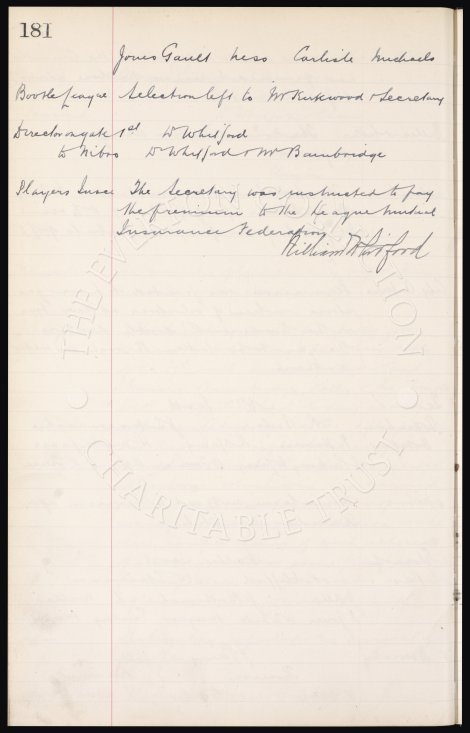 181
Jones Gault Hess Carlisle Michaels
Bootle League Selection left to Mr Kirkwood & Secretary
Director on gate 1st Dr Whitford
to Nibro Dr Whitford & Mr Bainbridge
Players Insce The Secretary was instructed to pay
the premium to the League Mutual
Insurance Federation
William Whitford
THE EVERTON COLLECTION
CHARITABLE TRUST